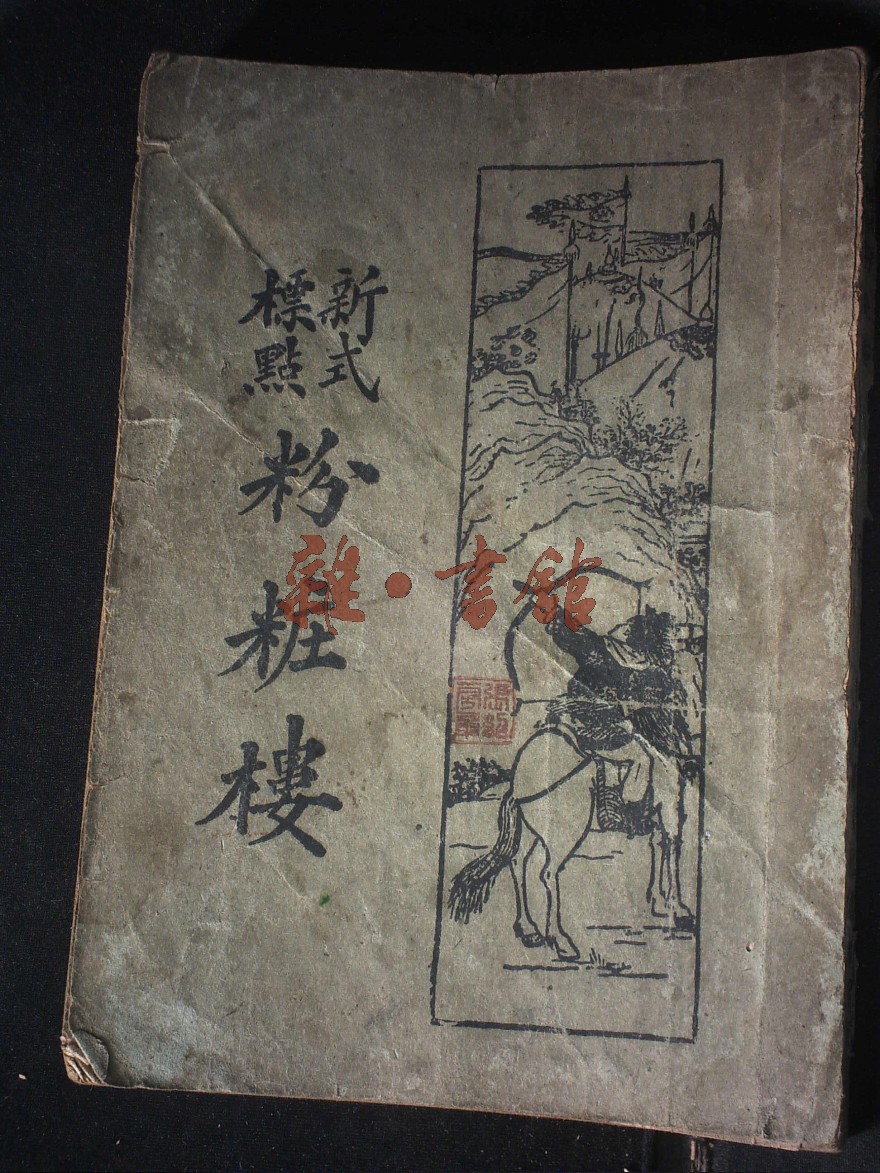 新式
標點
粉粧樓
雜·書館